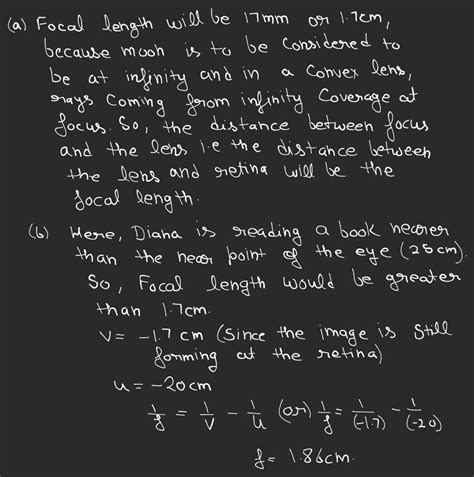 (a) Focal length will be 17mm or 1.7cm,
because moon is to be considered to
be at infinity and in a convex lens,
rays coming from infinity coverage at
focus. So, the distance between focus
and the lens i.e the distance between
the lens and retina will be the
focal length.
(b) Here, Diana is reading a book nearer
than the near point of the eye (25cm).
So, Focal length would be greater
than 1.7cm.
v = -1.7 cm (Since the image is still
forming at the retina)
u = -20cm
1/f = 1/v - 1/u (or) 1/f = 1/(-1.7) - 1/(-20)
f = 1.86cm.